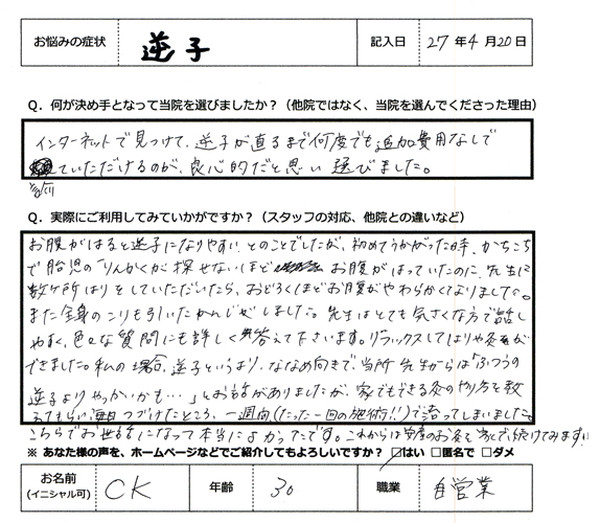 お悩みの症状 逆子 記入日 27年4月20日
Q. 何が決め手となって当院を選びましたか？（他院ではなく、当院を選んでくださった理由）
インターネットで見つけて、逆子が直るまで何度でも追加費用なしで
診ていただけるのが、良心的だと思い選びました。
Q. 実際にご利用してみていかがですか？（スタッフの対応、他院との違いなど）
お腹がはると逆子になりやすいとのことでしたが、初めてうかがった時、かちこち
で胎児のりんかくが探せないほど お腹がはっていたのに、先生に
数ヶ所はりをしていただいたら、おどろくほどお腹がやわらかくなりました。
また全身のこりも引いたかんじがしました。先生はとても気さくな方で話し
やすく、色々な質問にも詳しく答えて下さいます。リラックスしてはりや灸が
できました。私の場合、逆子というより、ななめ向きで、当所先生からは「ふつうの
逆子よりやっかいかも…」とお話がありましたが、家でもできる灸のやり方を教
えてもらい毎日つづけたところ、一週間（たった一回の施術!!）で治ってしまいました。
こちらでお世話になって本当によかったです。これからは安産のお灸を家で続けてみます!!
※ あなた様の声を、ホームページなどでご紹介してもよろしいですか？ □はい □匿名で □ダメ
お名前（イニシャル可） CK 年齢 30 職業 自営業